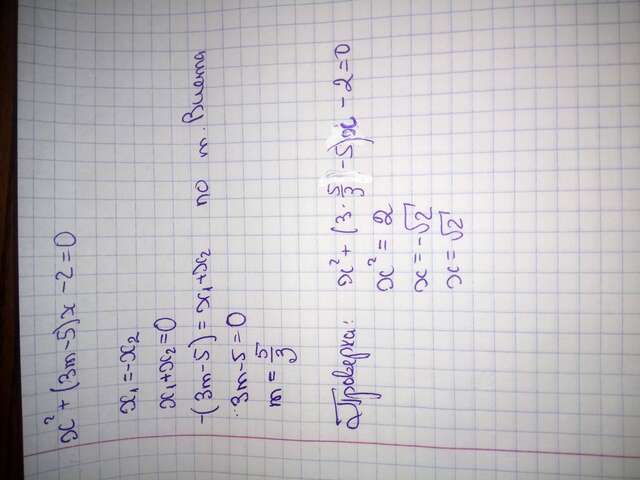 x² + (3m-5)x - 2 = 0
x₁ = -x₂
x₁ + x₂ = 0
-(3m-5) = x₁+x₂ по т. Виета
3m-5 = 0
m = 5/3
Проверка: x² + (3·5/3 - 5)x - 2 = 0
x² = 2
x = -√2
x = √2